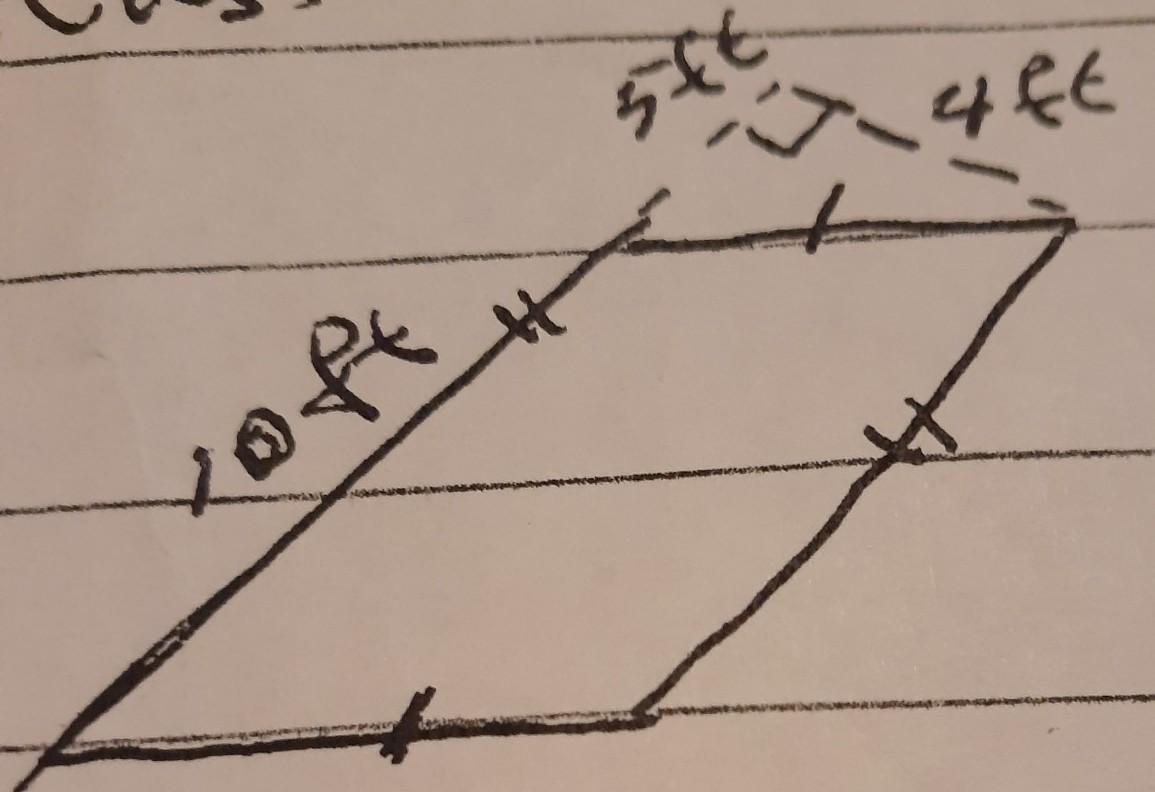 5ft
4ft
10ft